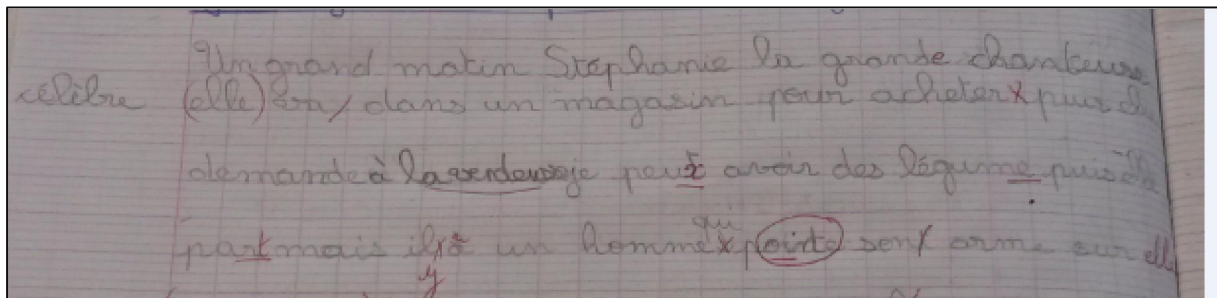 Un grand matin Stéphanie la grande chanteuse
célèbre (elle) dans un magasin pour acheter puis
demande à la vendeuse je peux avoir des légume puis
part mais il y a un homme qui pointe son arme sur elle